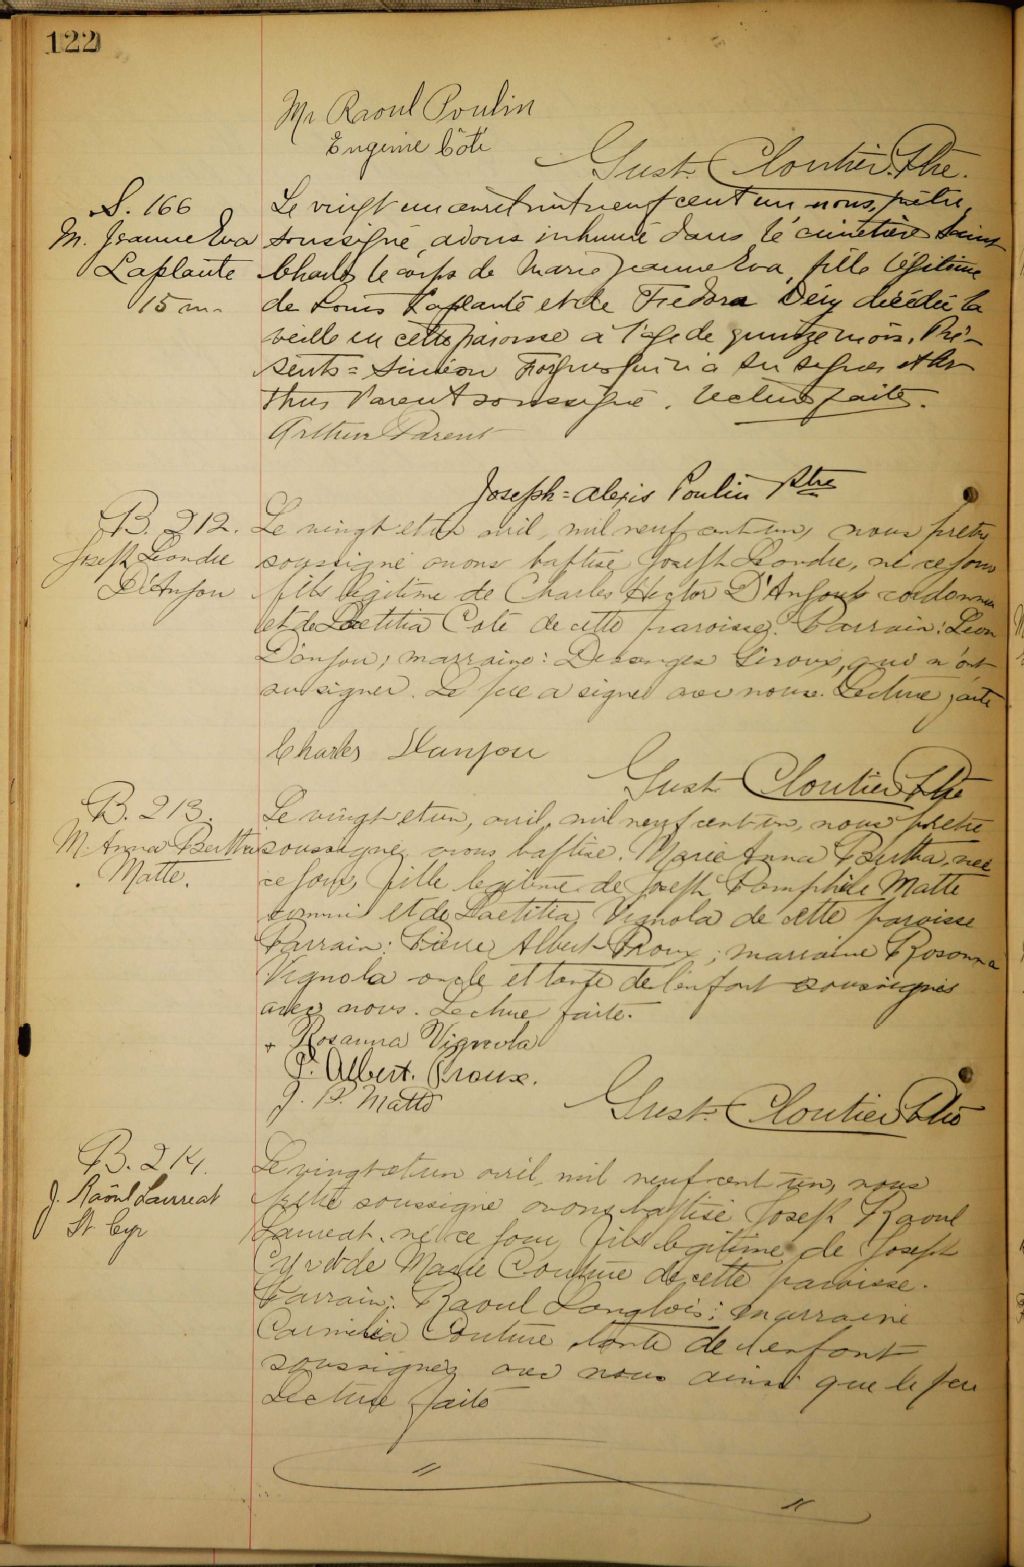 122
Mr Raoul Poulin
Eugénie Côté
Gust. Cloutier Ptre.
S. 166
M. Jeanne Eva
Laplante
15 m.
Le vingt un avril mil neuf cent un nous, prêtre,
soussigné avons inhumé dans le cimetière Saint
Charles le corps de Marie Jeanne Eva, fille légitime
de Louis Laplante et de Fredora Déry décédée la
veille en cette paroisse à l'âge de quinze mois. Pré-
sents = Siméon Forgues qui n'a su signer et Ar-
thur Parent soussigné. Lecture faite.
Arthur Parent
Joseph = Alexis Poulin Ptre
B. 212.
Joseph Léandre
D'Anjou
Le vingt et un avril, mil neuf cent un, nous prêtre
soussigné avons baptisé Joseph Léandre, né ce jour
fils légitime de Charles Hector D'Anjou cordonnier
et de Laetitia Cote de cette paroisse. Parrain: Léon
D'anjou; marraine: Desanges Giroux, qui n'ont
su signer. Le père a signé avec nous. Lecture faite
Charles Danjou
Gust. Cloutier Ptre
B. 213.
M. Anna Bertha
Matte.
Le vingt et un, avril, mil neuf cent un, nous prêtre
soussigné, avons baptisé. Marie Anna Bertha, née
ce jour, fille legitime de Joseph Pamphile Matte
commis et de Laetitia Vignola de cette paroisse
Parrain: Pierre Albert Proux; marraine Rosanna
Vignola oncle et tante de l'enfant soussignés
avec nous. Lecture faite.
+ Rosanna Vignola
P. Albert. Proux.
J. P. Matte
Gust. Cloutier Ptre
B. 214.
J. Raôul Laureat
St Cyr
Le vingt et un avril, mil neuf cent un, nous
prêtre soussigné avons baptisé Joseph Raoul
Laureat. né ce jour, fils légitime de Joseph
Cyr et de Marie Couture de cette paroisse.
Parrain: Raoul Langlois; marraine
Couture tante de l'enfant
soussignés avec nous ainsi que le père
Lecture faite